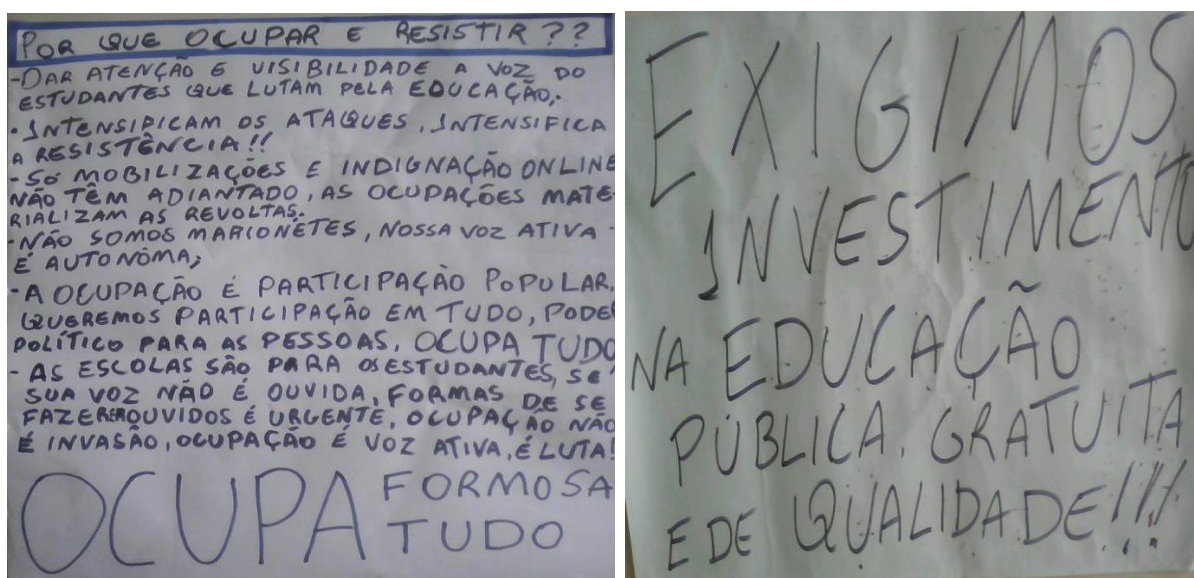 POR QUE OCUPAR E RESISTIR??
-DAR ATENÇÃO E VISIBILIDADE A VOZ DO
ESTUDANTES QUE LUTAM PELA EDUCAÇÃO;.
- INTENSIFICAM OS ATAQUES, INTENSIFICA
A RESISTÊNCIA!!
- SÓ MOBILIZAÇÕES E INDIGNAÇÃO ONLINE
NÃO TÊM ADIANTADO, AS OCUPAÇÕES MATE-
RIALIZAM AS REVOLTAS.
- NÃO SOMOS MARIONETES, NOSSA VOZ ATIVA
É AUTONÔMA;
- A OCUPAÇÃO É PARTICIPAÇÃO POPULAR.
QUEREMOS PARTICIPAÇÃO EM TUDO, PODE
POLÍTICO PARA AS PESSOAS, OCUPA TUDO
- AS ESCOLAS SÃO PARA OS ESTUDANTES, SE
SUA VOZ NÃO É OUVIDA, FORMAS DE SE
FAZEREM OUVIDOS É URGENTE, OCUPAÇÃO NÃO
É INVASÃO, OCUPAÇÃO É VOZ ATIVA, É LUTA!
OCUPA FORMOSA
TUDO
EXIGIMOS
INVESTIMENTO
NA EDUCAÇÃO
PÚBLICA, GRATUITA
E DE QUALIDADE!!!